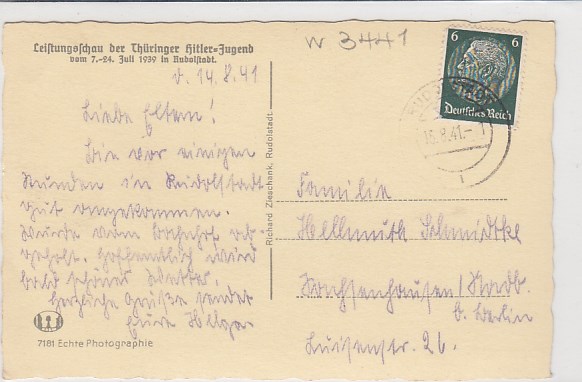 Leistungsschau der Thüringer Hitler-Jugend
vom 7.-24. Juli 1939 in Rudolstadt.
W 3441
d. 14.8.41
Liebe Eltern!
Bin vor einigen
Stunden in Rudolstadt
gut angekommen.
Wurde vom Bahnhof ab-
geholt. Hoffentlich wird
bald schönes Wetter.
Herzliche Grüße sendet
Eure Helga.
7181 Echte Photographie
Richard Zieschank, Rudolstadt
6 6
Deutsches Reich
15.8.41.-
Familie
Hellmuth Schmidtke
Sachsenhausen / Nordb.
b. Berlin
Luisenstr. 26.